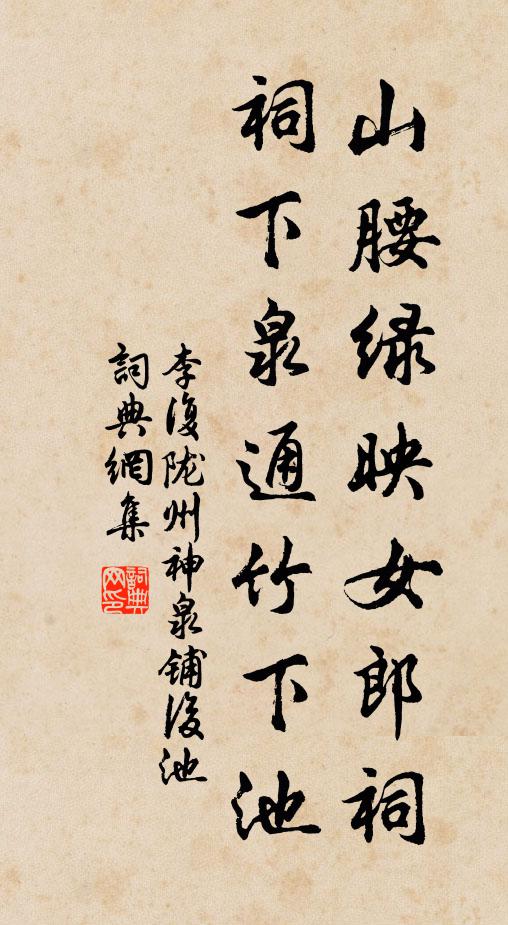 山腰绿映女郎祠
祠下泉通竹下池
李復陇州神泉铺後池
詞典網集
詞典
网印